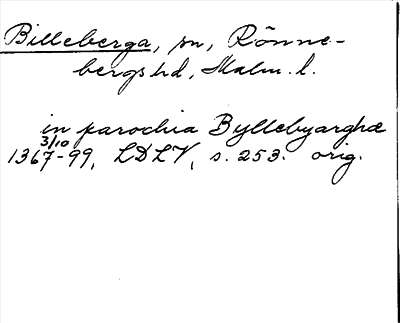 Billeberga, sn, Rönne-
bergs hd, Malm. l.
in parochia Byllebyarghæ
3/10
1367-99, LDLV, s. 253. orig.